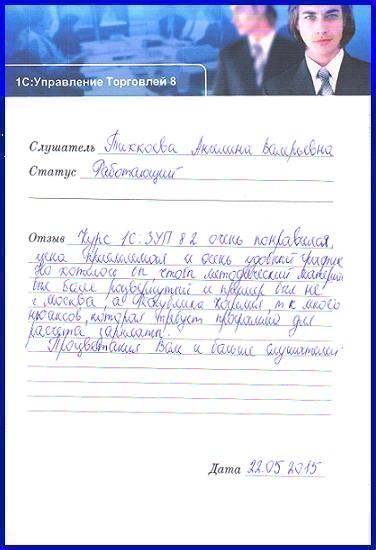 1С:Управление Торговлей 8
Слушатель Тихкоева Ангелина Валерьевна
Статус Работающий
Отзыв Курс 1С:ЗУП 8 2 очень понравился,
цена приемлемая и очень удобный график
Но хотелось бы, чтобы методический материал
был более развернутый и пример был не
г. Москва, а Республика Карелия, т к много
нюансов, которая требует программа для
расчета зарплаты.
Процветания Вам и больше слушателей
Дата 22.05 2015